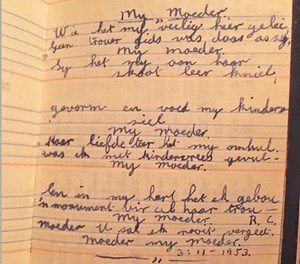 My Moeder.
Wie het my veilig hier gelei
Geen trouer gids was daar as sy,
My moeder.
Sy het my aan haar
skoot leer kniel,
gevorm en voed my kinder
siel
My moeder.
Haar liefde teer het my omhul.
was ek met kindervrees gevul-
My moeder.
En in my hart het ek gebou
'n monument vir al haar trou
My moeder. R.C.
Moeder U sal ek nooit vergeet.
Moeder my moeder.
3:11-1953.